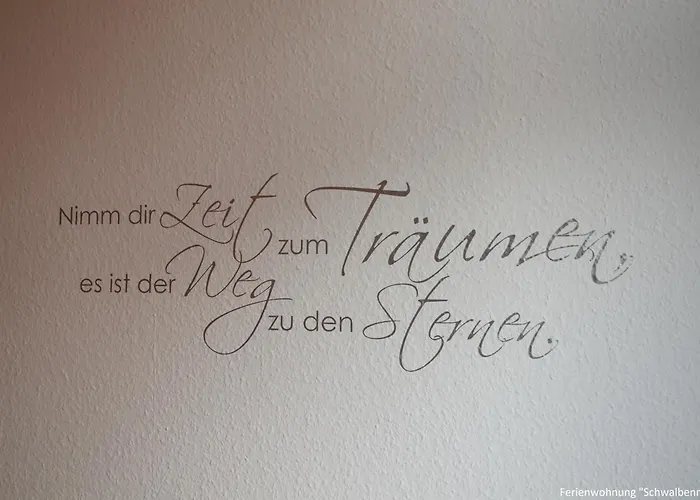 Nimm dir Zeit zum Träumen,
es ist der Weg zu den Sternen.
Ferienwohnung "Schwalben